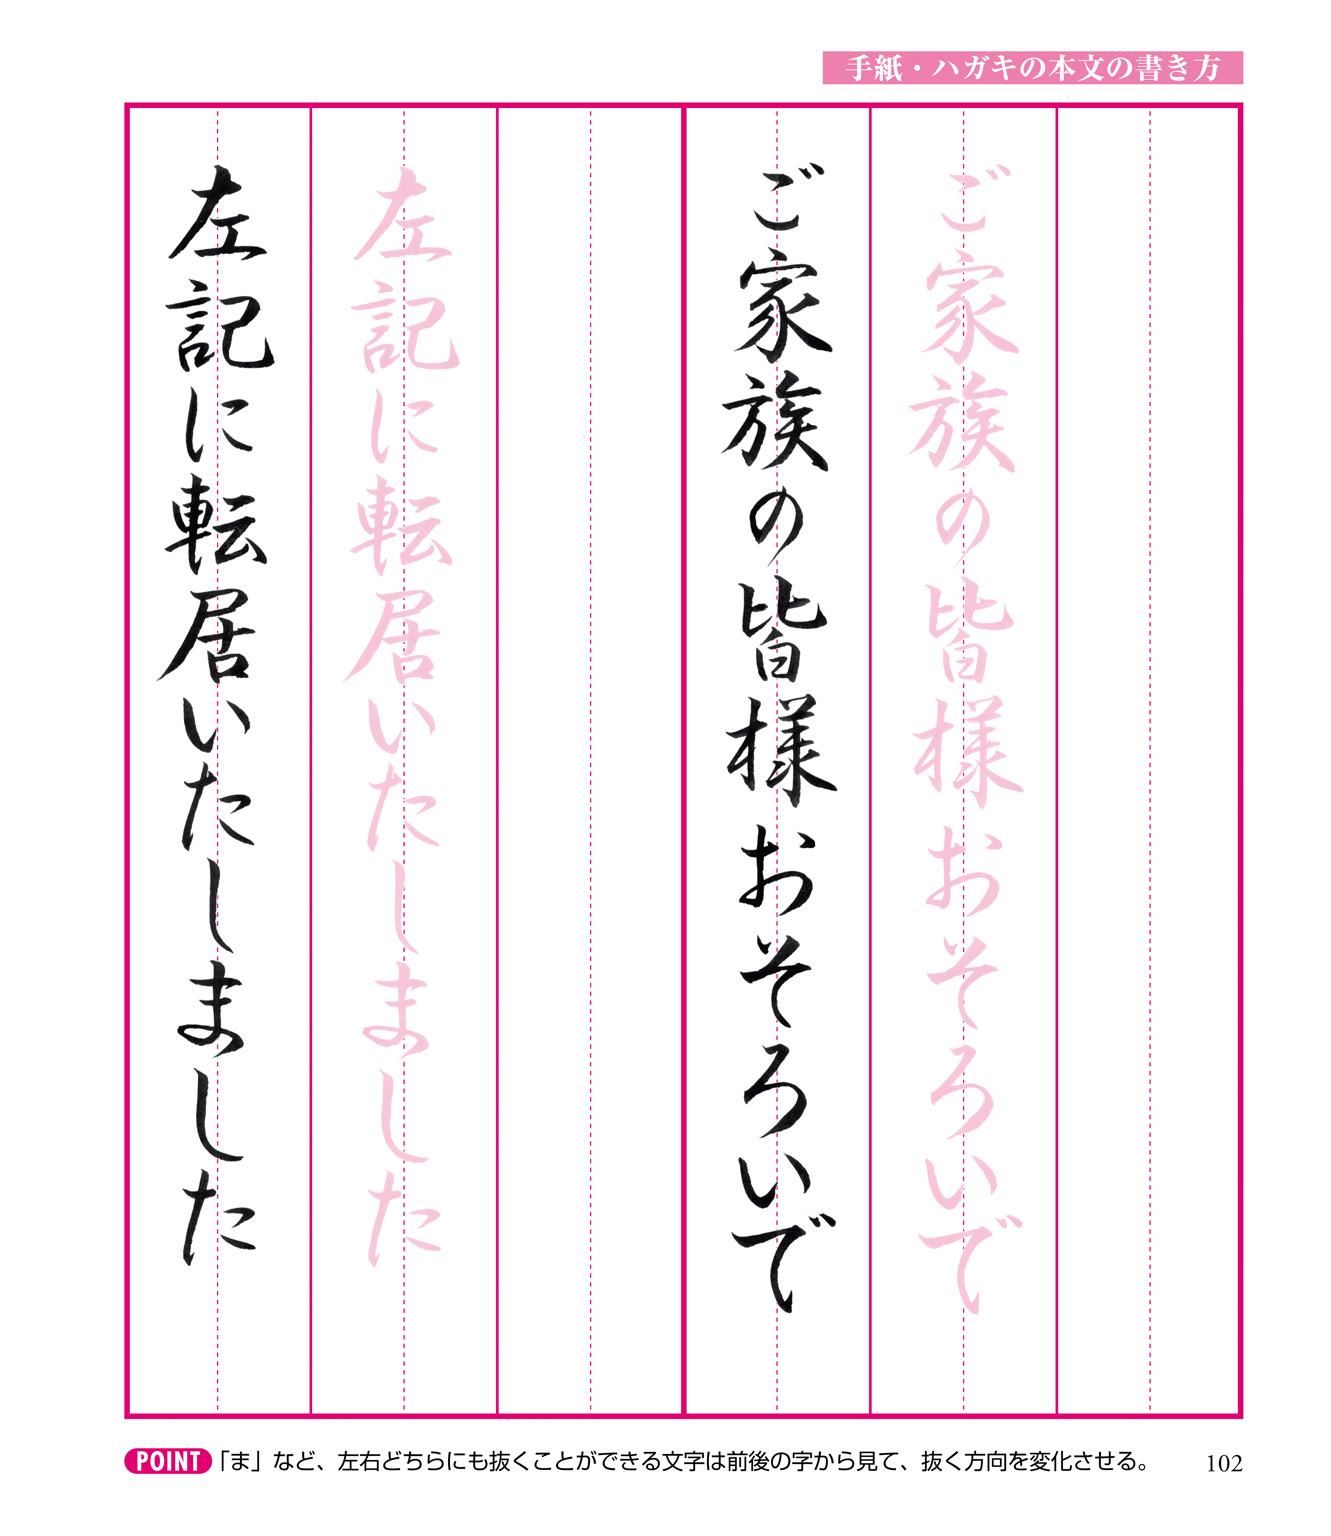 手紙・ハガキの本文の書き方
ご家族の皆様おそろいで
ご家族の皆様おそろいで
左記に転居いたしました
左記に転居いたしました
POINT 「ま」など、左右どちらにも抜くことができる文字は前後の字から見て、抜く方向を変化させる。
102